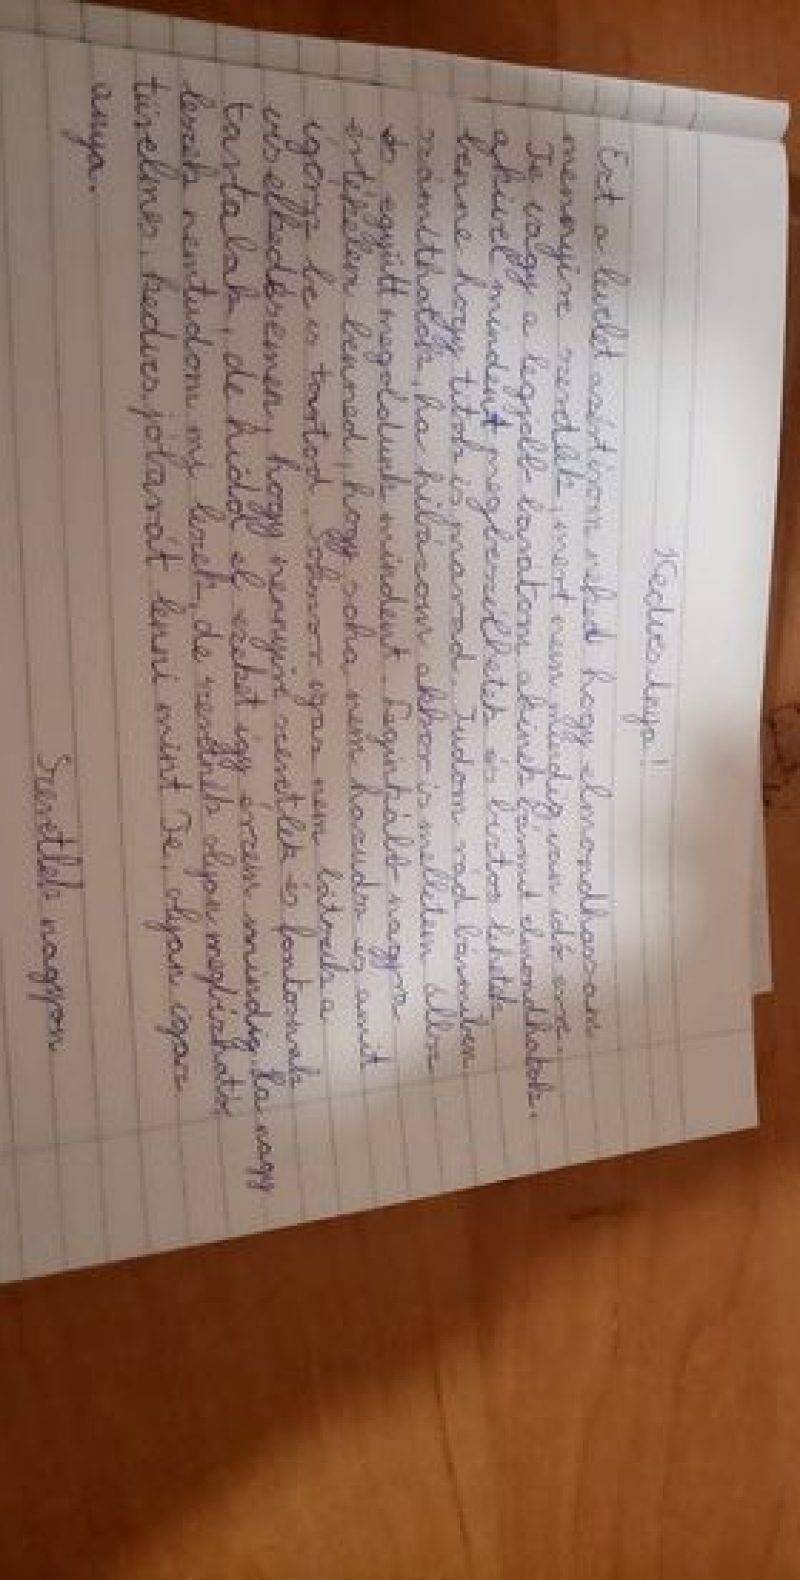 Kedves Anya!
Ezt a levelet azért írom neked hogy elmondhassam
mennyire szeretlek, mert nem mindig van idő erre.
Te vagy a legjobb barátom akinek bármit elmondhatok,
akivel mindent megbeszélhetek és biztos lehetek
benne hogy titok is marad. Tudom rád bármiben
számíthatok, ha hibázom akkor is mellettem állsz
és együtt megoldunk mindent. Leginkább nagyra
értékelem benned, hogy soha nem hazudsz és amit
ígérsz be is tartod. Sokszor igaz nem látszik a
viselkedésemen, hogy mennyire szeretlek és fontosnak
tartalak, de hidd el ezeket így érzem mindig. Ha nagy
leszek nemtudom mi leszek, de szeretnék olyan megbízható
türelmes, kedves, jóbarát lenni mint Te, olyan igazi
anya.
Szeretlek nagyon